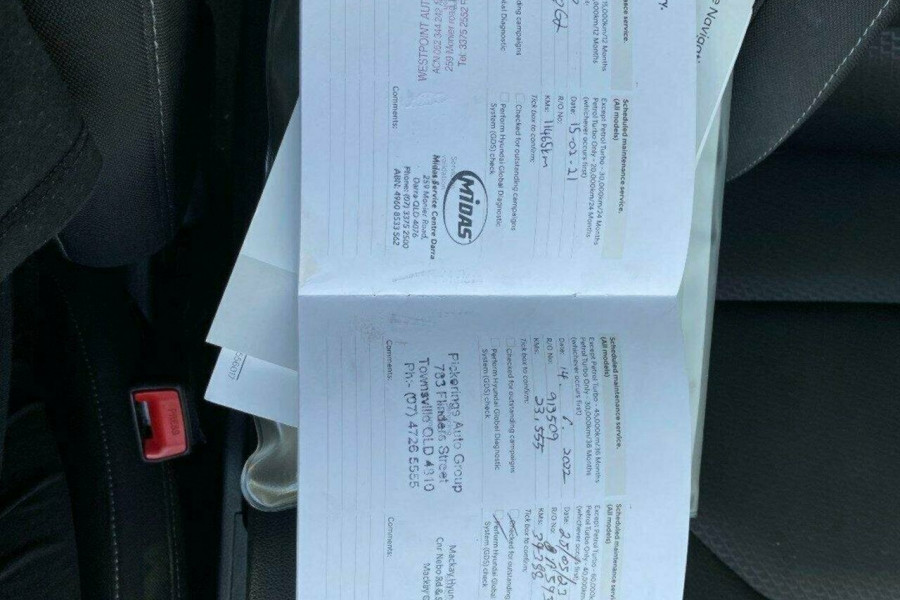 e Navigat
y.
d maintenance service.
15,000km/12 Months
,000km/12 Months
ding campaigns
al Diagnostic
WESTPOINT AUT
ACN 052 344 245
259 Monier road
Tel: 3375 2500
Scheduled maintenance service.
(All models)
Except Petrol Turbo - 30,000km/24 Months
Petrol Turbo Only - 20,000km/24 Months
(whichever occurs first)
Date: 15-02-21
R/O No:
KMs: 11465km
Tick box to confirm:
Checked for outstanding campaigns
Perform Hyundai Global Diagnostic
System (GDS) check
MIDAS
Midas Service Centre Darra
259 Monier Road,
Darra QLD 4076
Phone: (07) 3375 2500
ABN: 4960 8533 562
Comments:
Scheduled maintenance service.
(All models)
Except Petrol Turbo - 45,000km/36 Months
Petrol Turbo Only - 30,000km/36 Months
(whichever occurs first)
Date: 14. 2022
R/O No: 913509
KMs: 23,555
Tick box to confirm:
Checked for outstanding campaigns
Perform Hyundai Global Diagnostic
System (GDS) check
Pickerings Auto Group
783 Flinders Street
Townsville QLD 4810
Ph:- (07) 4726 5555
Comments:
Scheduled maintenance service.
(All models)
Except Petrol Turbo - 60,000k
Petrol Turbo Only - 40,000km
(whichever occurs first)
Date: 25/05/23
R/O No:
KMs: 39788
Tick box to confirm:
Checked for outstanding
Perform Hyundai Global
System (GDS) check
Mackay Hyun
Cnr Nebo Rd & 
Mackay
Comments:
PRESS